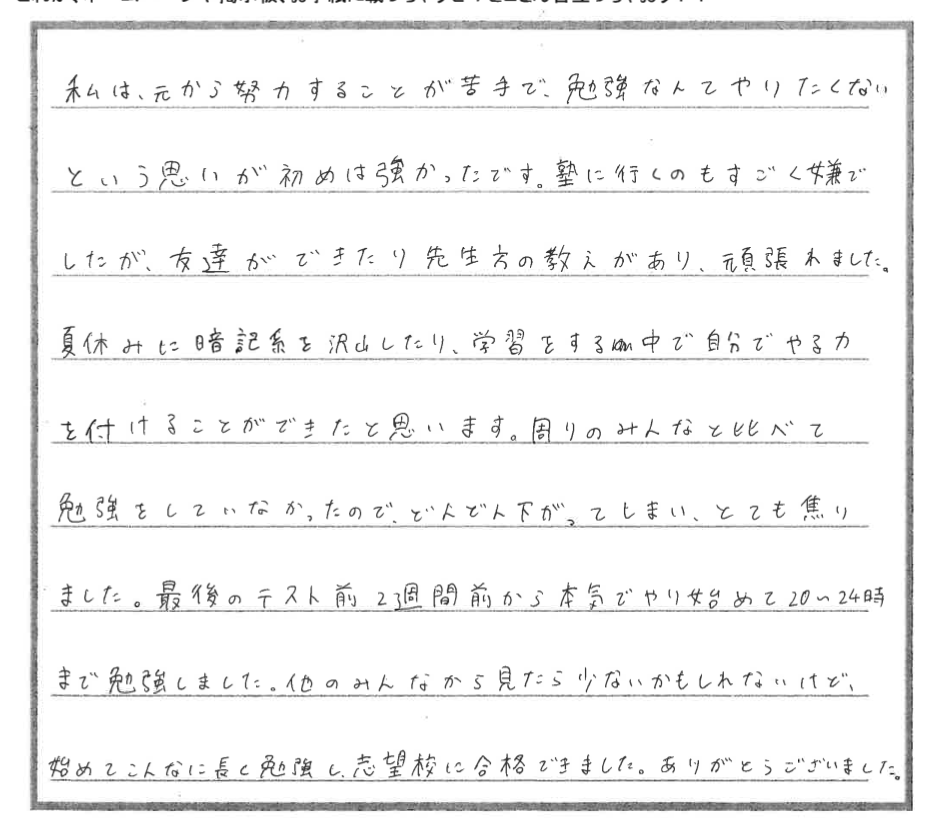 私は、元から努力することが苦手で、勉強なんてやりたくない
という思いが初めは強かったです。塾に行くのもすごく嫌で
したが、友達ができたり先生方の教えがあり、頑張れました。
夏休みに暗記系を沢山したり、学習をする中で自分でやる力
を付けることができたと思います。周りのみんなと比べて
勉強をしていなかったので、どんどん下がってしまい、とても焦り
ました。最後のテスト前2週間前から本気でやり始めて20〜24時
まで勉強しました。他のみんなから見たら少ないかもしれないけど、
始めてこんなに長く勉強し、志望校に合格できました。ありがとうございました。